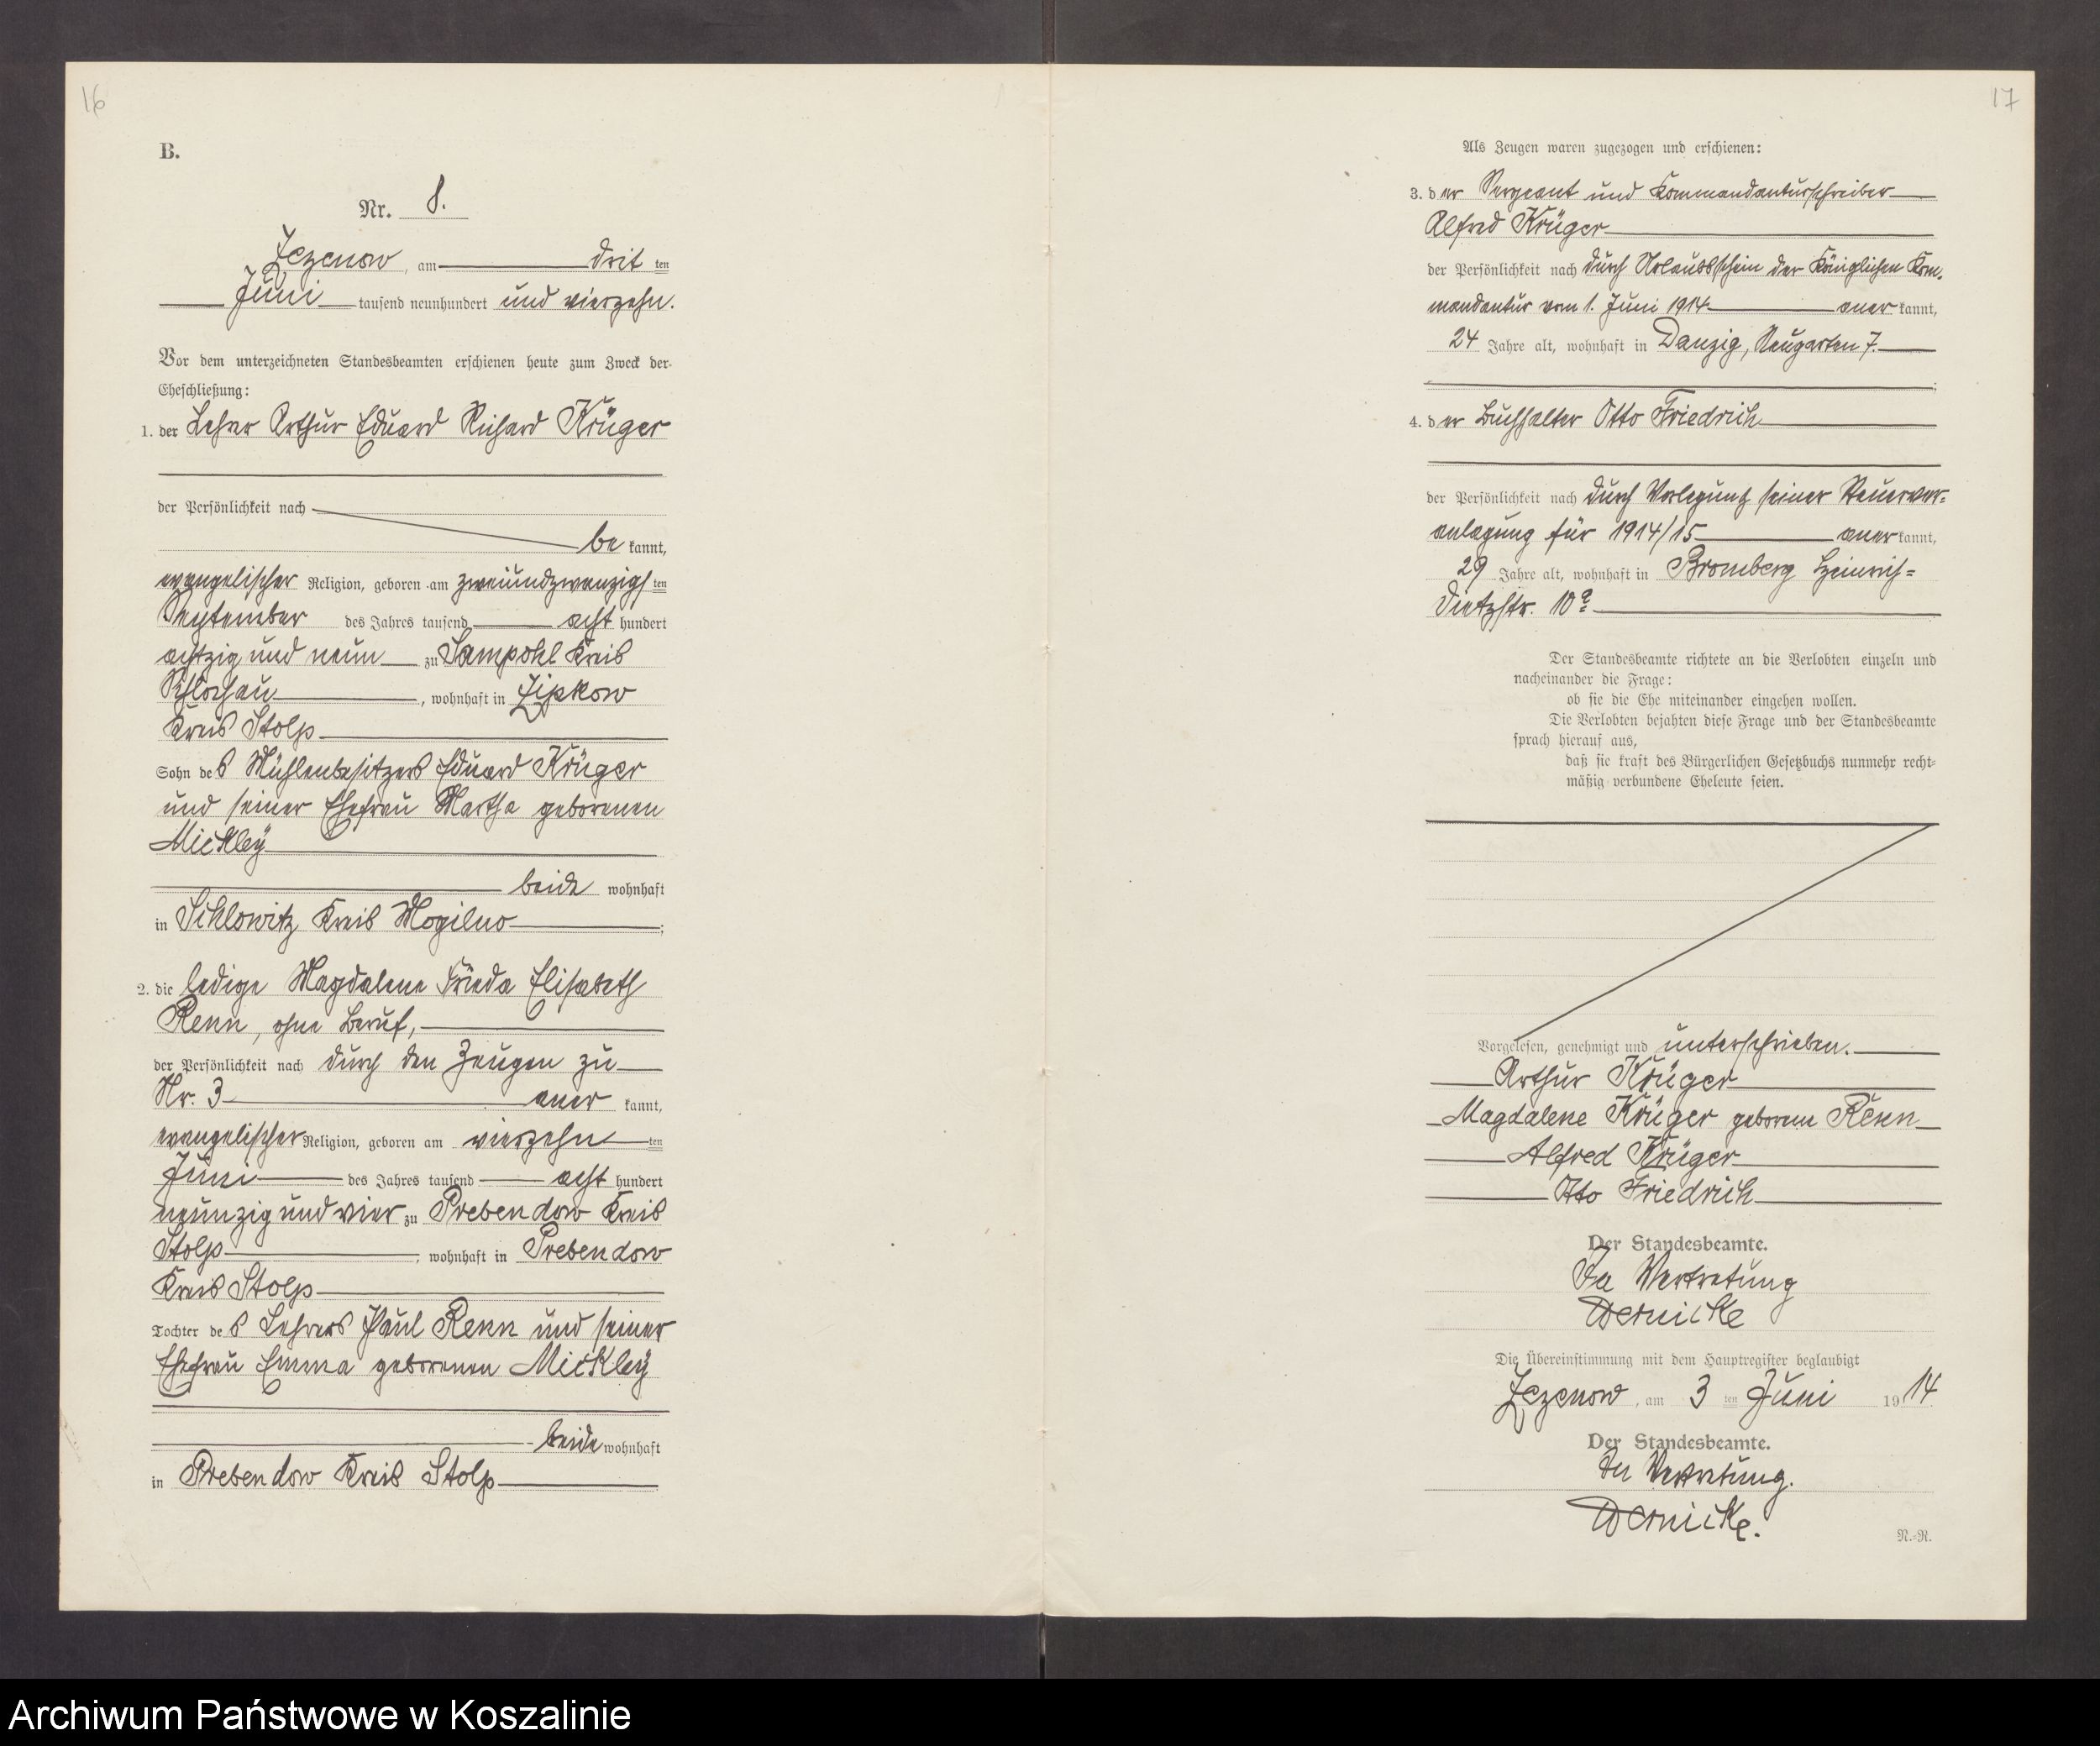 16
B.
Nr. 8.
Zezenow, am drit ten
Juni tausend neunhundert und vierzehn.
Vor dem unterzeichneten Standesbeamten erschienen heute zum Zweck der
Eheschließung:
1. der Lehrer Arthur Eduard Richard Krüger
der Persönlichkeit nach
be kannt,
evangelischer Religion, geboren am zweiundzwanzigsten
September des Jahres tausend acht hundert
achtzig und neun zu Sampohl Kreis
Schlochau, wohnhaft in Zipkow
Kreis Stolp
Sohn des Mühlenbesitzers Eduard Krüger
und seiner Ehefrau Martha geborenen
Mickley
beide wohnhaft
in Schlowitz Kreis Mogilno;
2. die ledige Magdalene Frieda Elisabeth
Renn, ohne Beruf,
der Persönlichkeit nach durch den Zeugen zu
Nr. 3 aner kannt,
evangelischer Religion, geboren am vierzehn ten
Juni des Jahres tausend acht hundert
neunzig und vier zu Prebendow Kreis
Stolp, wohnhaft in Prebendow
Kreis Stolp
Tochter des Lehrers Paul Renn und seiner
Ehefrau Emma geborenen Mickley
beide wohnhaft
in Prebendow Kreis Stolp
17
Als Zeugen waren zugezogen und erschienen:
3. der Sergeant und Kommandanturschreiber
Alfred Krüger
der Persönlichkeit nach durch Urlaubsschein der Königlichen Kom-
mandantur vom 1. Juni 1914 aner kannt,
24 Jahre alt, wohnhaft in Danzig, Neugarten 7.
;
4. der Buchhalter Otto Friedrich
der Persönlichkeit nach durch Vorlegung seiner Steuerver-
anlagung für 1914/15 aner kannt,
29 Jahre alt, wohnhaft in Bromberg Heinrich-
Dietzstr. 10a
Der Standesbeamte richtete an die Verlobten einzeln und
nacheinander die Frage:
ob sie die Ehe miteinander eingehen wollen.
Die Verlobten bejahten diese Frage und der Standesbeamte
sprach hierauf aus,
daß sie kraft des Bürgerlichen Gesetzbuchs nunmehr recht-
mäßig verbundene Eheleute seien.
Vorgelesen, genehmigt und unterschrieben.
Arthur Krüger
Magdalene Krüger geborene Renn
Alfred Krüger
Otto Friedrich
Der Standesbeamte.
In Vertretung
Wernicke
Die Übereinstimmung mit dem Hauptregister beglaubigt
Zezenow, am 3 ten Juni 1914
Der Standesbeamte.
In Vertretung.
Wernicke.
N.-R.
Archiwum Państwowe w Koszalinie